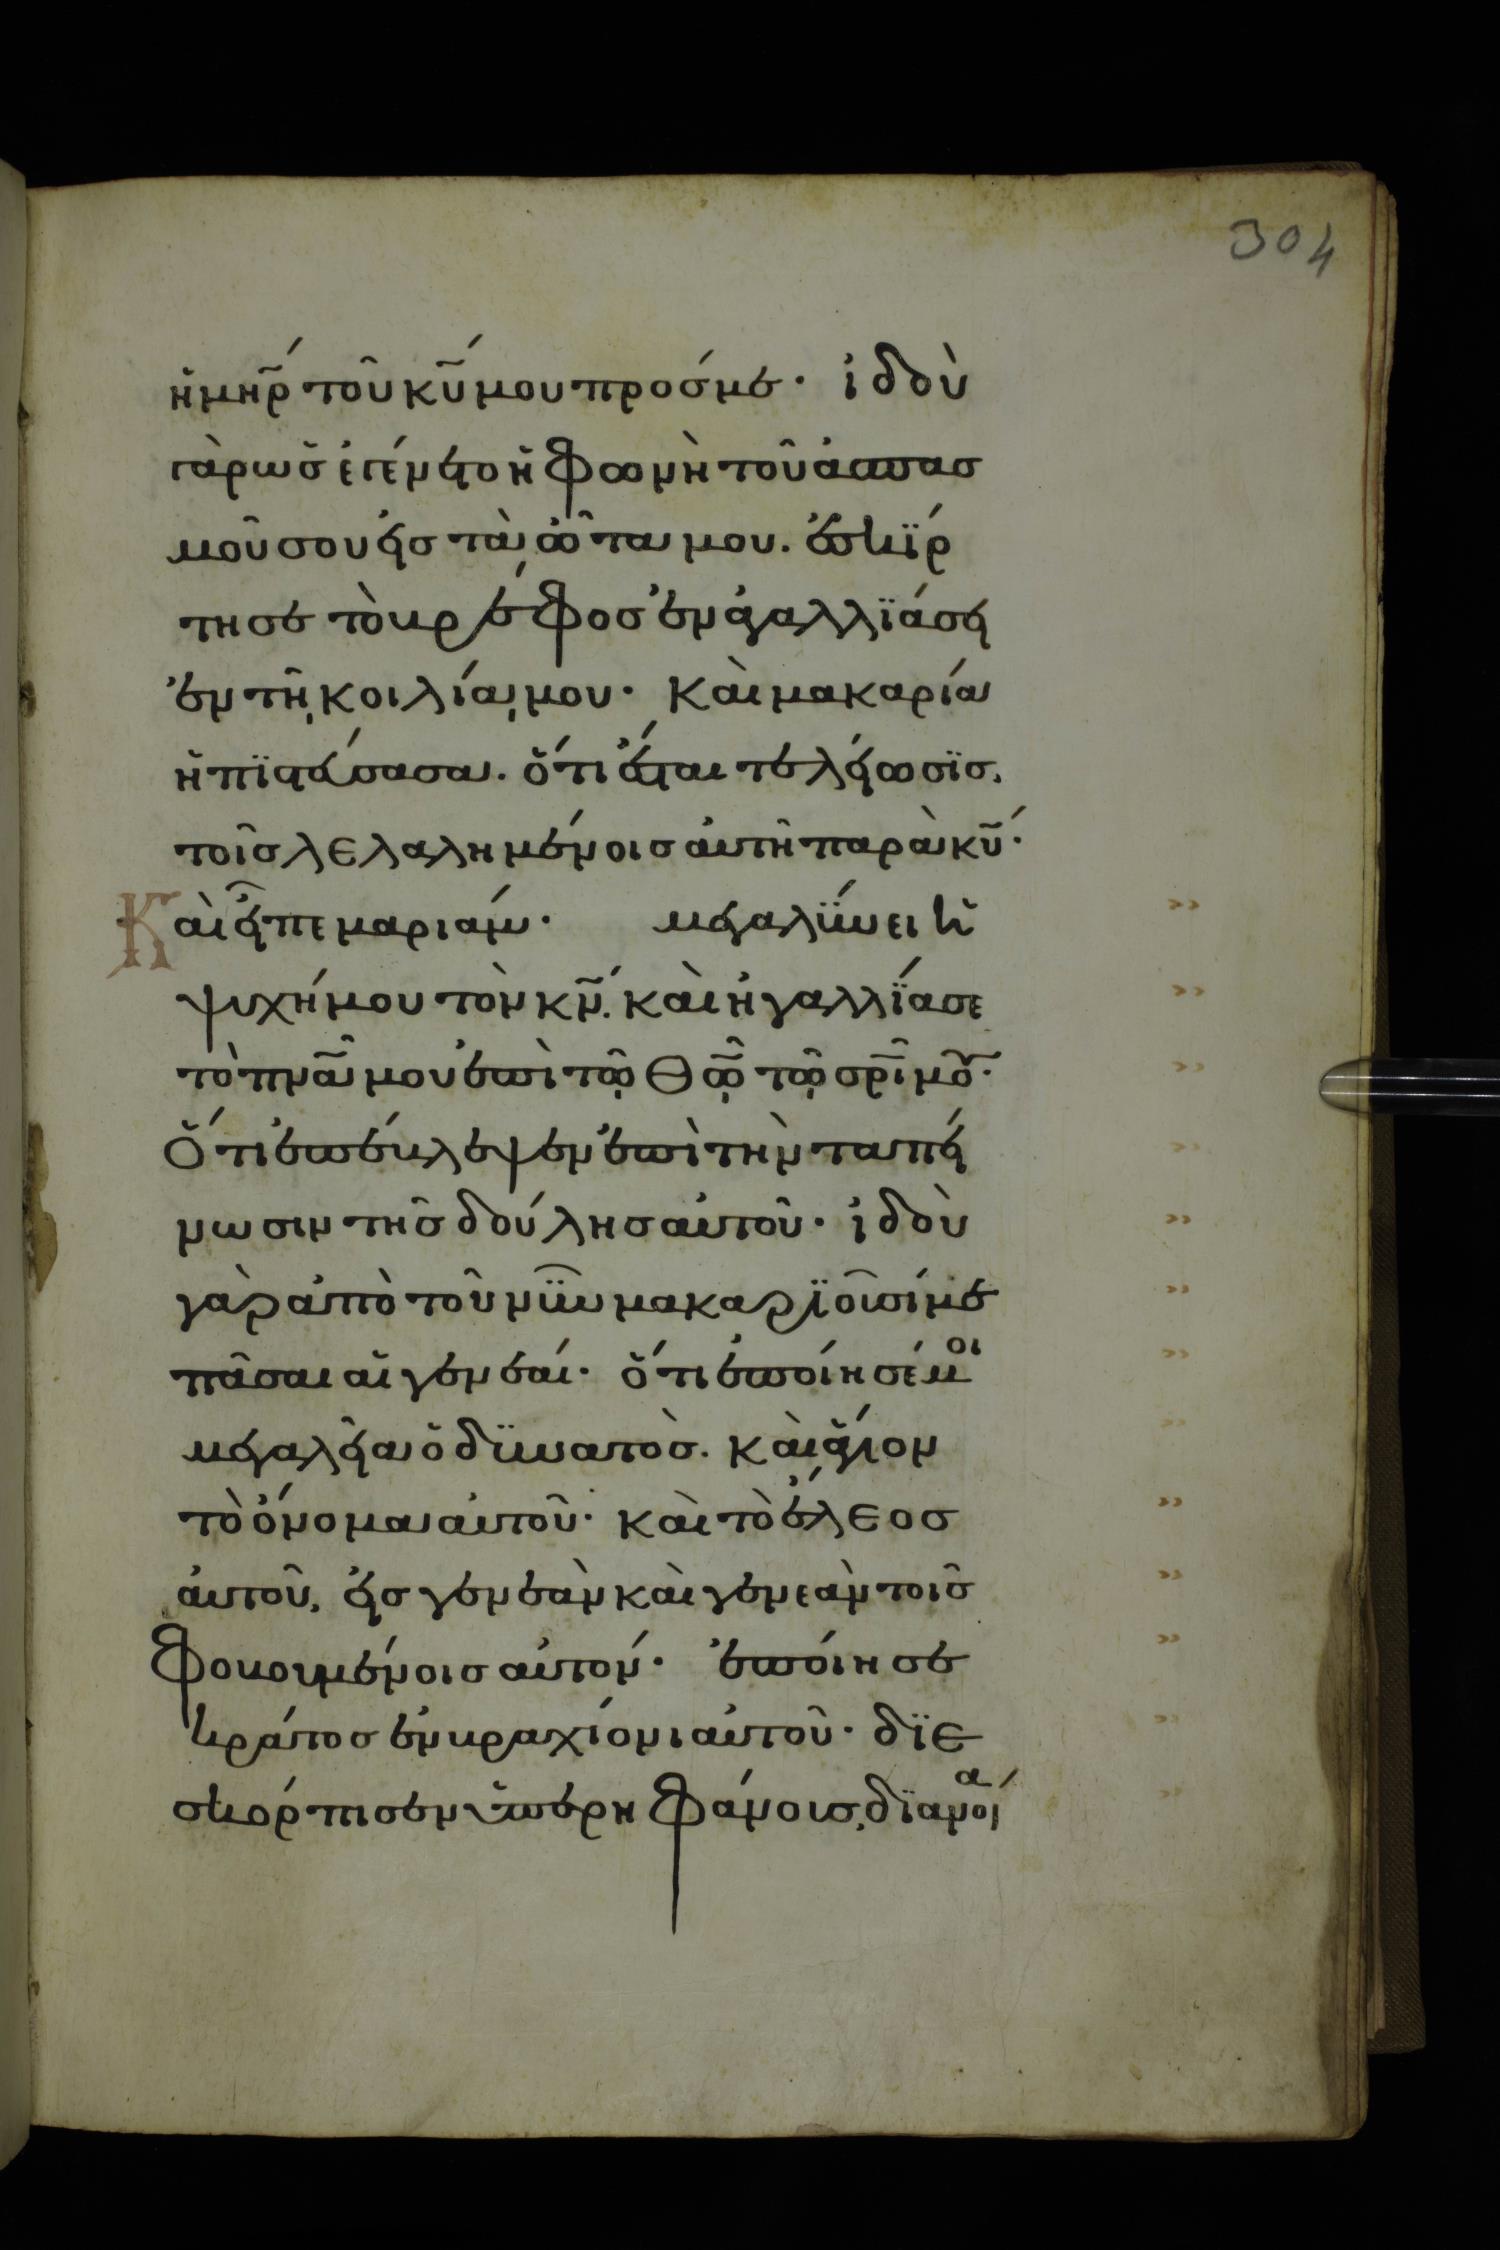 304
ἡ μηρ τοῦ κυ μου πρός με· ἰδοὺ
γὰρ ὡς ἐγένετο ἡ φωνὴ τοῦ ἀσπασ
μοῦ σου εἰς τὰ ὦτα μου. ἐσκίρ
τησε τὸ βρέφος ἐν ἀγαλλϊάσει
ἐν τῇ κοιλίᾳ μου· καὶ μακαρία
ἡ πϊστεύσασα. ὅτι ἔσται τελείωσϊς.
τοῖς λελαλημένοις αὐτῆ παρὰ κυ·
Καὶ εἶπε μαριάμ· μεγαλΰνει ἡ
ψυχή μου τὸν κν. καὶ ἠγαλλΐασε
τὸ πνα μου ἐπὶ τῷ θω τῷ σρι μου·
Ὅτι ἐπέβλεψεν ἐπὶ τὴν ταπεί
νωσιν τῆς δούλης αὐτοῦ· ἰδοὺ
γὰρ ἀπὸ τοῦ νῦν μακαρϊοῦσί με
πᾶσαι αἱ γενεαί· ὅτι ἐποίησέ μοι
μεγαλεῖα ὁ δϋνατὸς. καὶ ἅγιον
τὸ ὄνομα αὐτοῦ· καὶ τὸ ἔλεος
αὐτοῦ, εἰς γενεὰν καὶ γενεὰν τοῖς
φοβουμένοις αὐτόν· ἐποίησε
κράτος ἐν βραχίονι αὐτοῦ· δϊε
σκόρπισεν ὑπερηφάνοις, δϊανοίᾳ